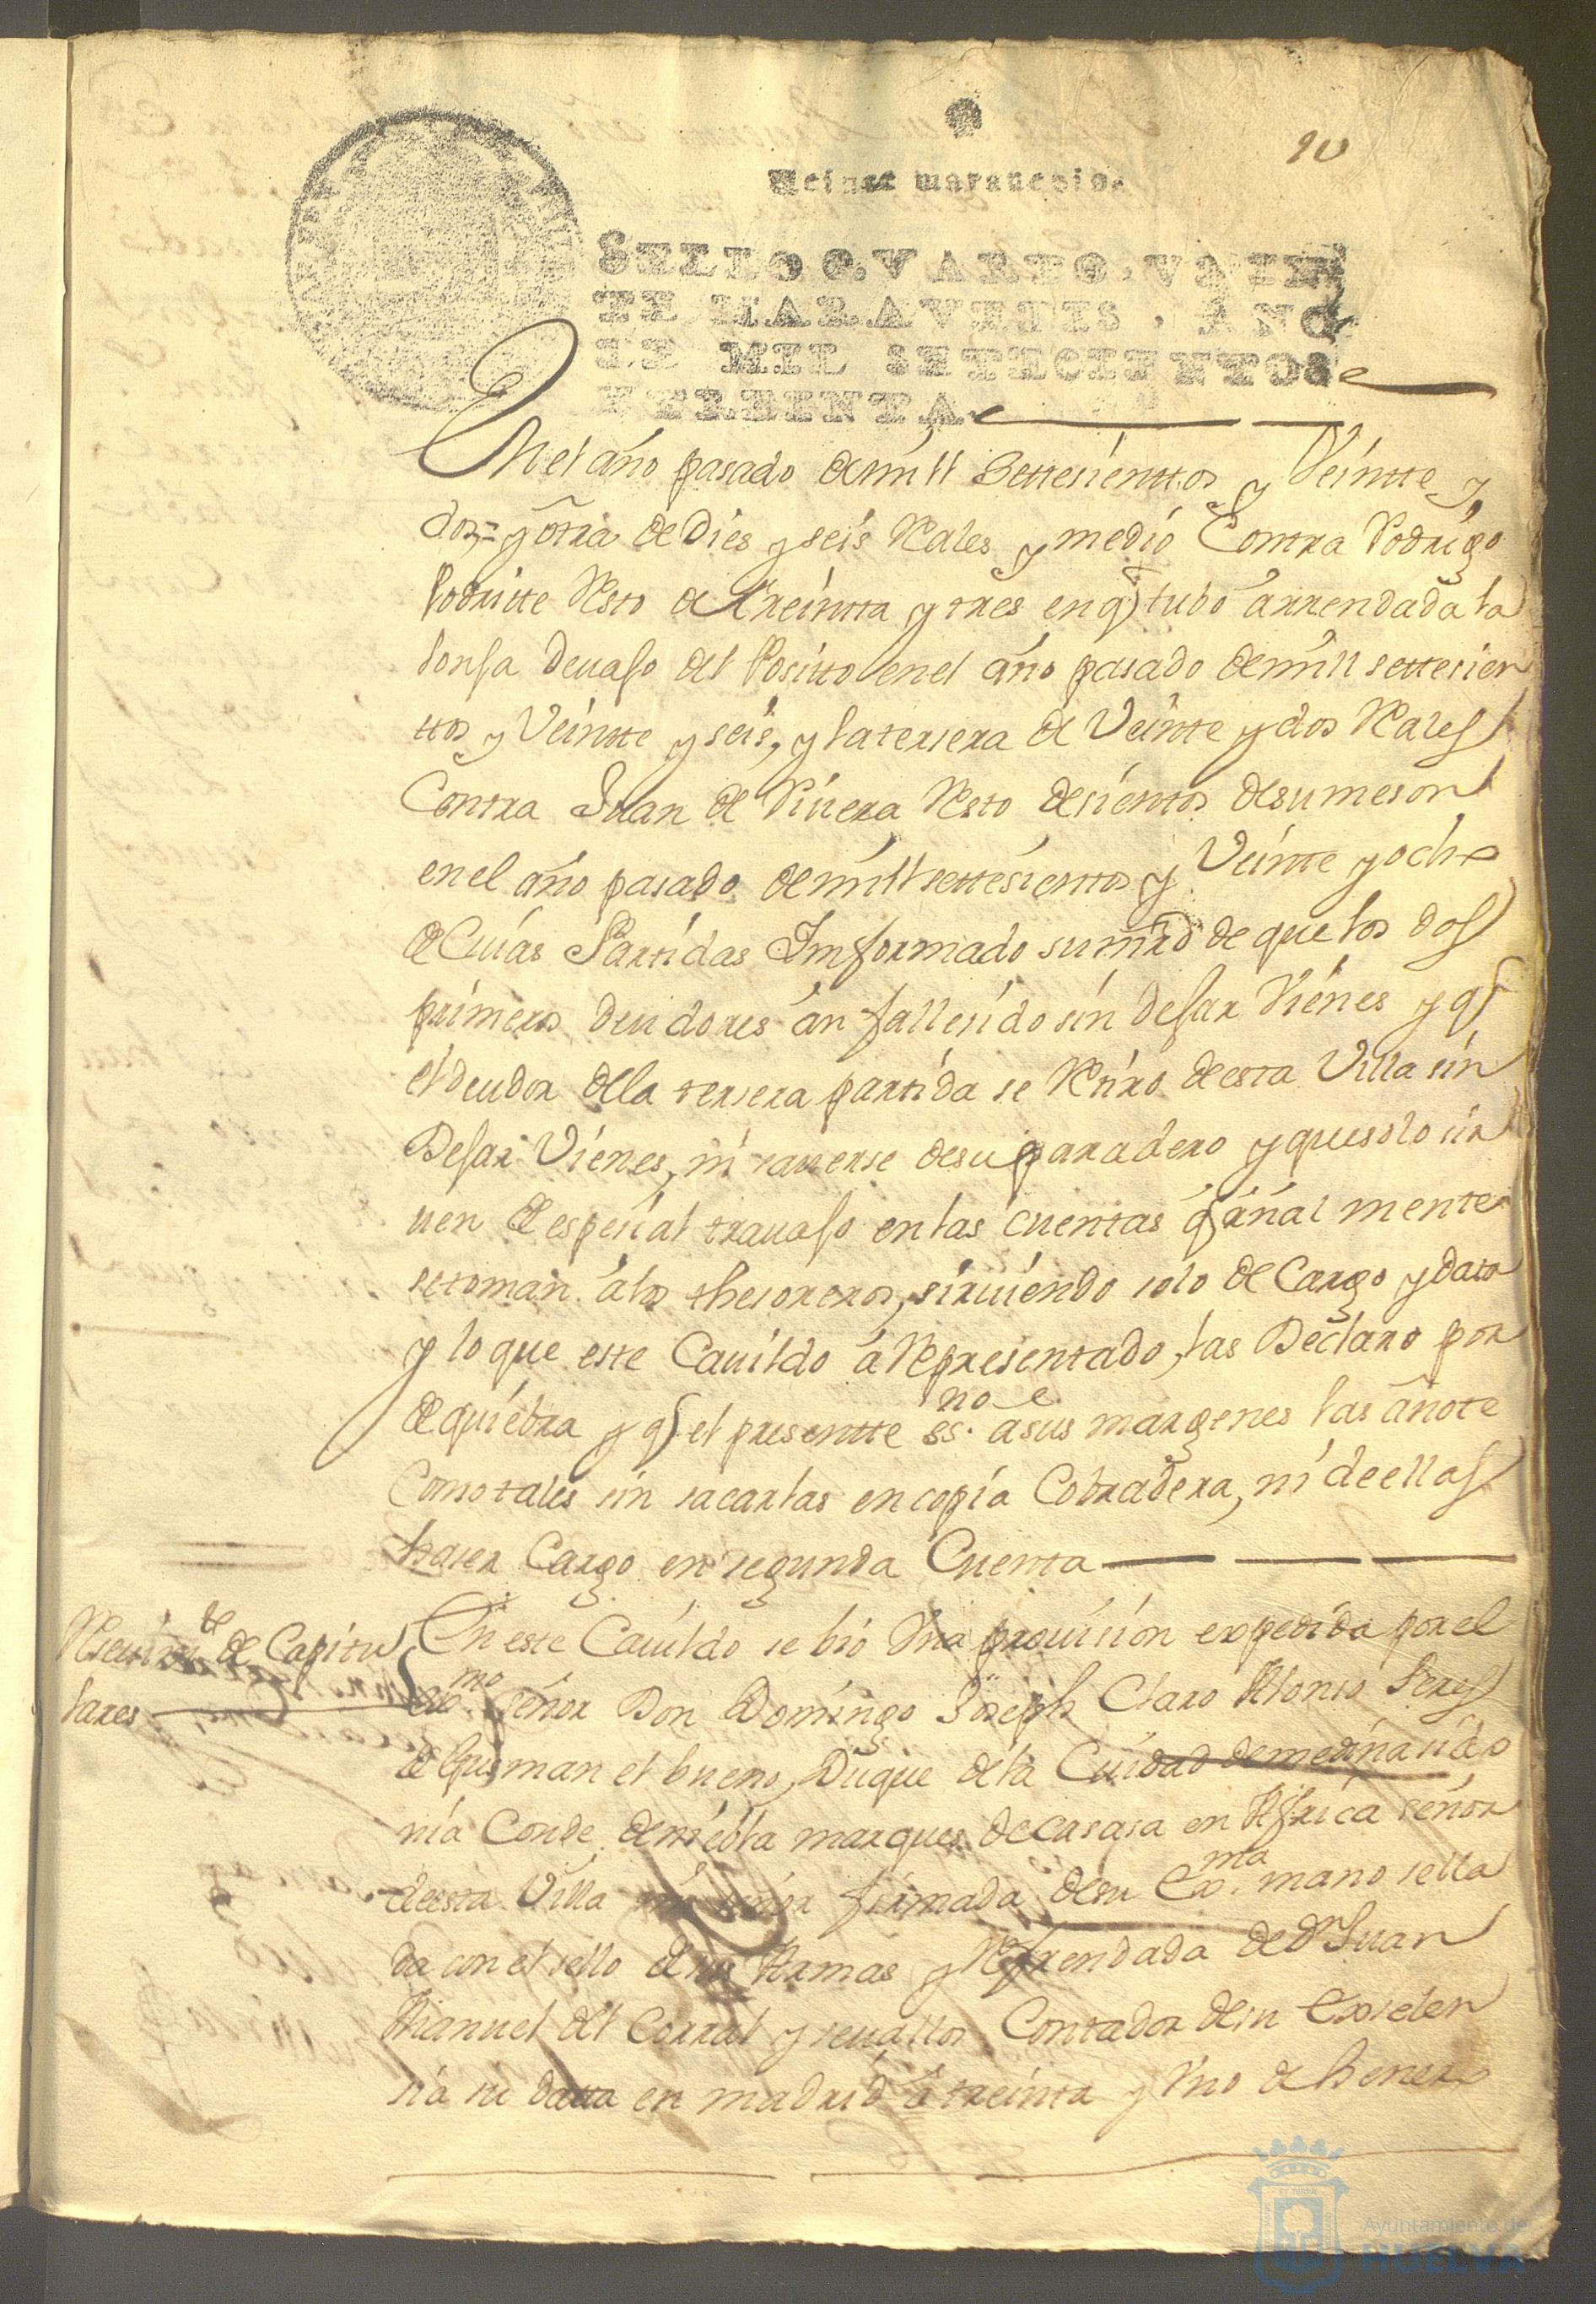 10
Veinte maravedis.
SELLO QVARTO, VEIN
TE MARAVEDIS, AÑO
DE MIL SETECIENTOS
Y TREINTA.
En el año pasado de mill settesienttos y Veintte y
dos = y otra de Dies y seis Reales y medio Contra Rodrigo
Resto de treintta y tres en q tubo arrendada la
lonja devajo del Positto en el año pasado de mill settesien
ttos y Veintte y seis, y la tersera de Veinte y dos Reales
Contra Juan de Rivera Resto de sientos de su meson
en el año pasado de mill settesientos y Veinte y ocho
de Cuias Partidas Imformado su mrd de que los dos
primeros deudores an fallesido sin dejar Vienes y q
el deudor de la tersera partida se Retiro de esta Villa sin
Dejar Vienes, ni saverse de su paradero y que solo sir
ven de espesial travajo en las cuentas q anal mente
se toman a los thesoreros, sirviendo solo de Cargo y data
y lo que este Cavildo a Representado, las Declaro por
de quiebra y q el presentte es.no a sus margenes las anote
Como tales sin sacarlas en copia Cobradera, ni de ellas
haser Cargo en segunda Cuenta
de Capitu
lares
En este Cavildo se bio Una provision expedida por el
exmo señor Don Domingo Joseph Claro Alonso Peres
de Gusman el bueno, Duque de la Ciudad de medina sido
nia Conde de niebla marques de casasa en Africa señor
de esta Villa mi señor firmada de su Ex.ma mano sella
da con el sello de sus Armas y Refrendada de Dn Juan
Manuel del Corral y sevallos Contador de su Exselen
sia su datta en madrid a treinta y Uno de henero
Ayuntamiento de
HUELVA